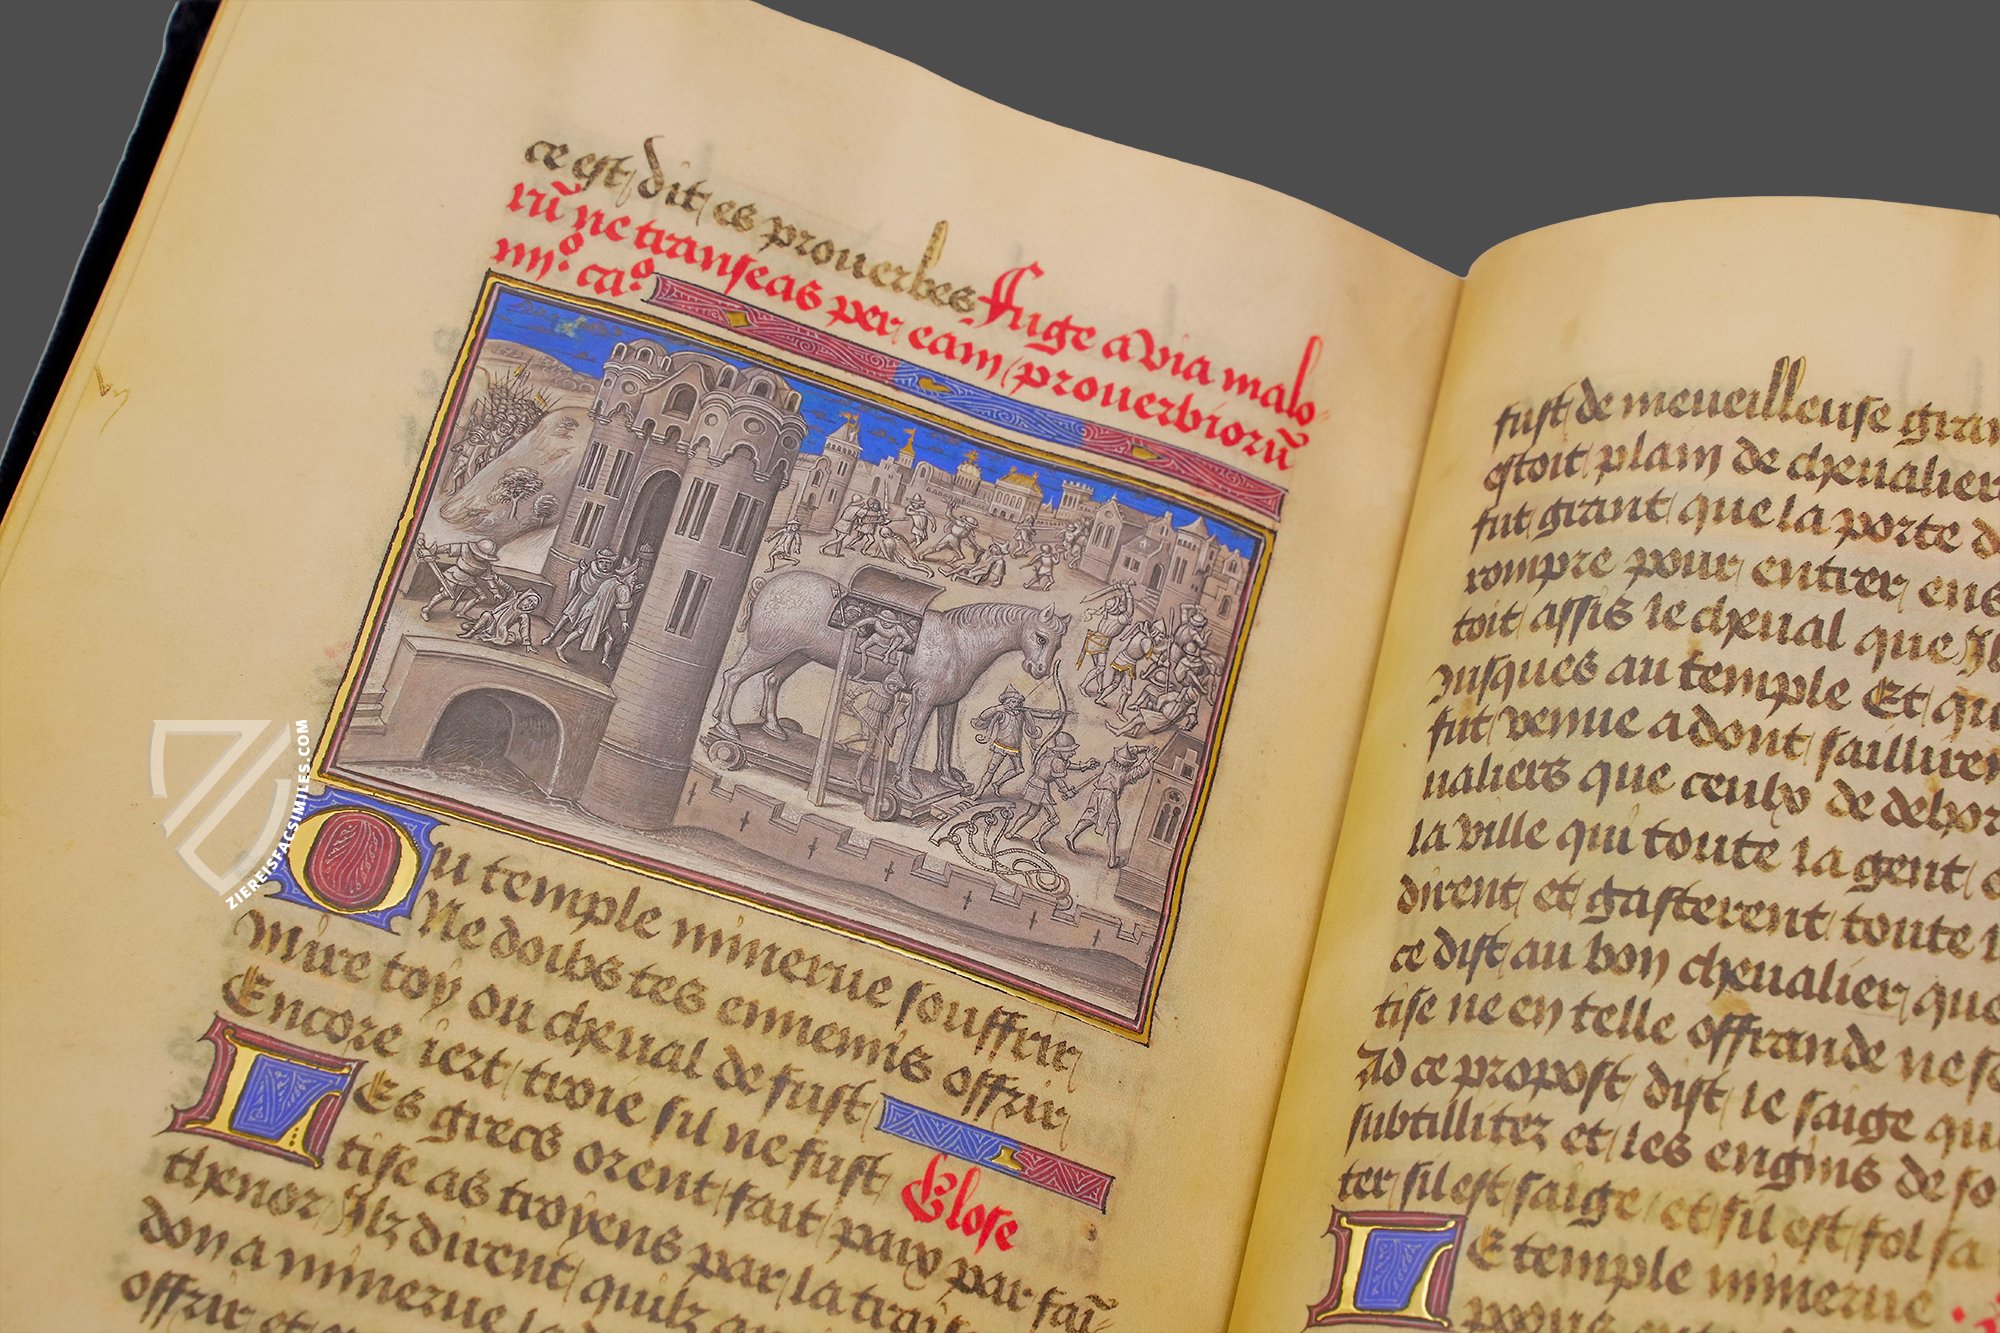 ce est dit es prouerbes Fuge a via malo
rū ne transeas per eam prouerbiorū
iiijº. caº.
Ou temple minerue souffrir
Ne doibs tes ennemis offrir
Mire toy ou cheual de fust
Encore iert troie sil ne fust
Glose
Les grecs orent fait paix par fai
tise as troyens par la
thenor Ilz dirent quilz
don a minerue
offrir et
fust de meueilleuse
estoit plain de
fut grant que la porte
rompre pour entrer
toit assis le cheual que
Jusques au temple Et
fut venue adont
ualiers que ceulx de
la ville qui toute la gent
et gasterent toute
ce dist au bon cheualier que
tise ne en telle offrande ne
Ad ce propost dist le saige
subtillitez et les engins de
ter sil est saige et sil est fol sa
Le temple minerue
ZIEREISFACSIMILES.COM